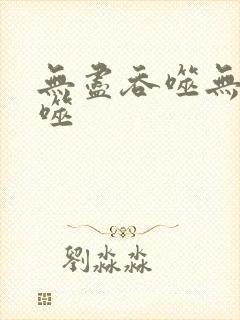 無盡吞噬無
噬
劉淼淼